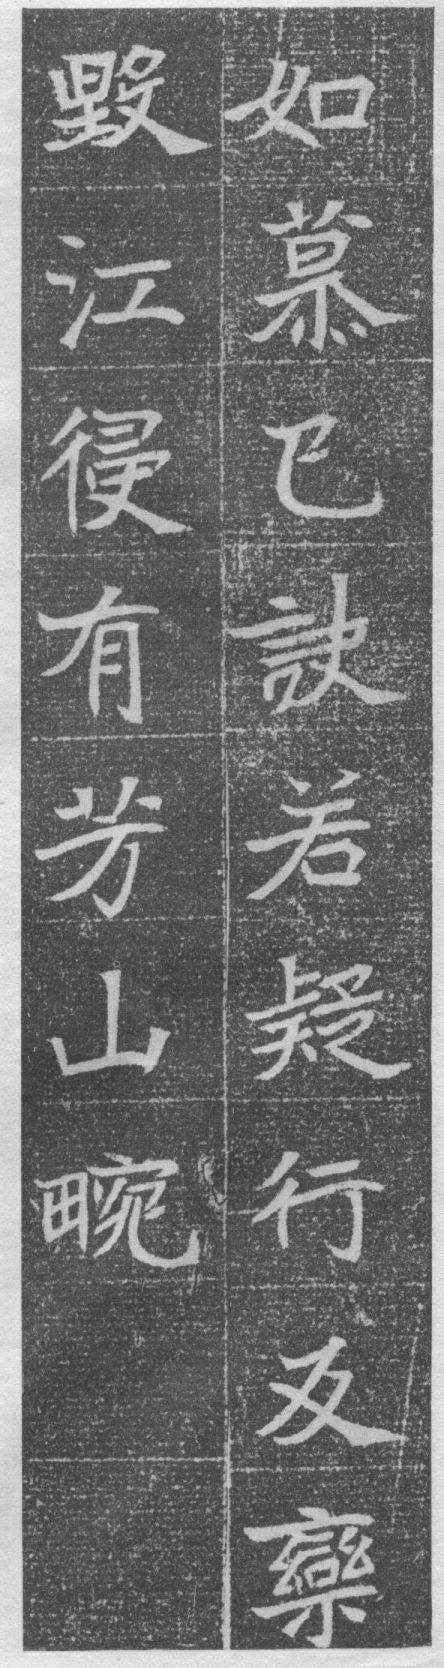 如慕已訣若疑行及欒
毀江侵有芳山畹